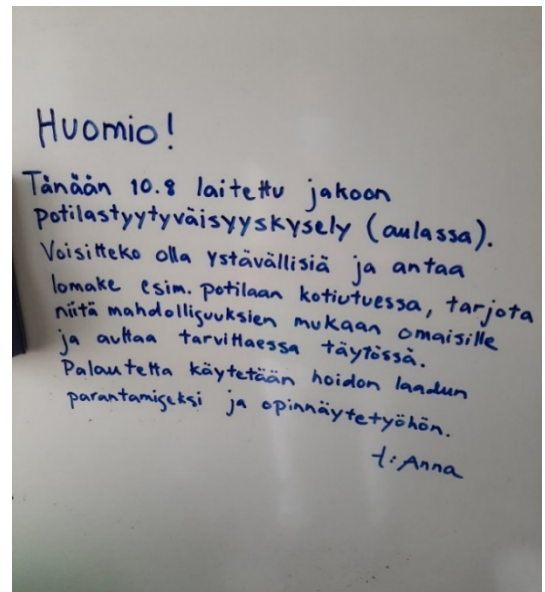 Huomio!
Tänään 10.8 laitettu jakoon
potilastyytyväisyyskysely (aulassa).
Voisitteko olla ystävällisiä ja antaa
lomake esim. potilaan kotiutuessa, tarjota
niitä mahdollisuuksien mukaan omaisille
ja auttaa tarvittaessa täytössä.
Palautetta käytetään hoidon laadun
parantamiseksi ja opinnäytetyöhön.
t: Anna